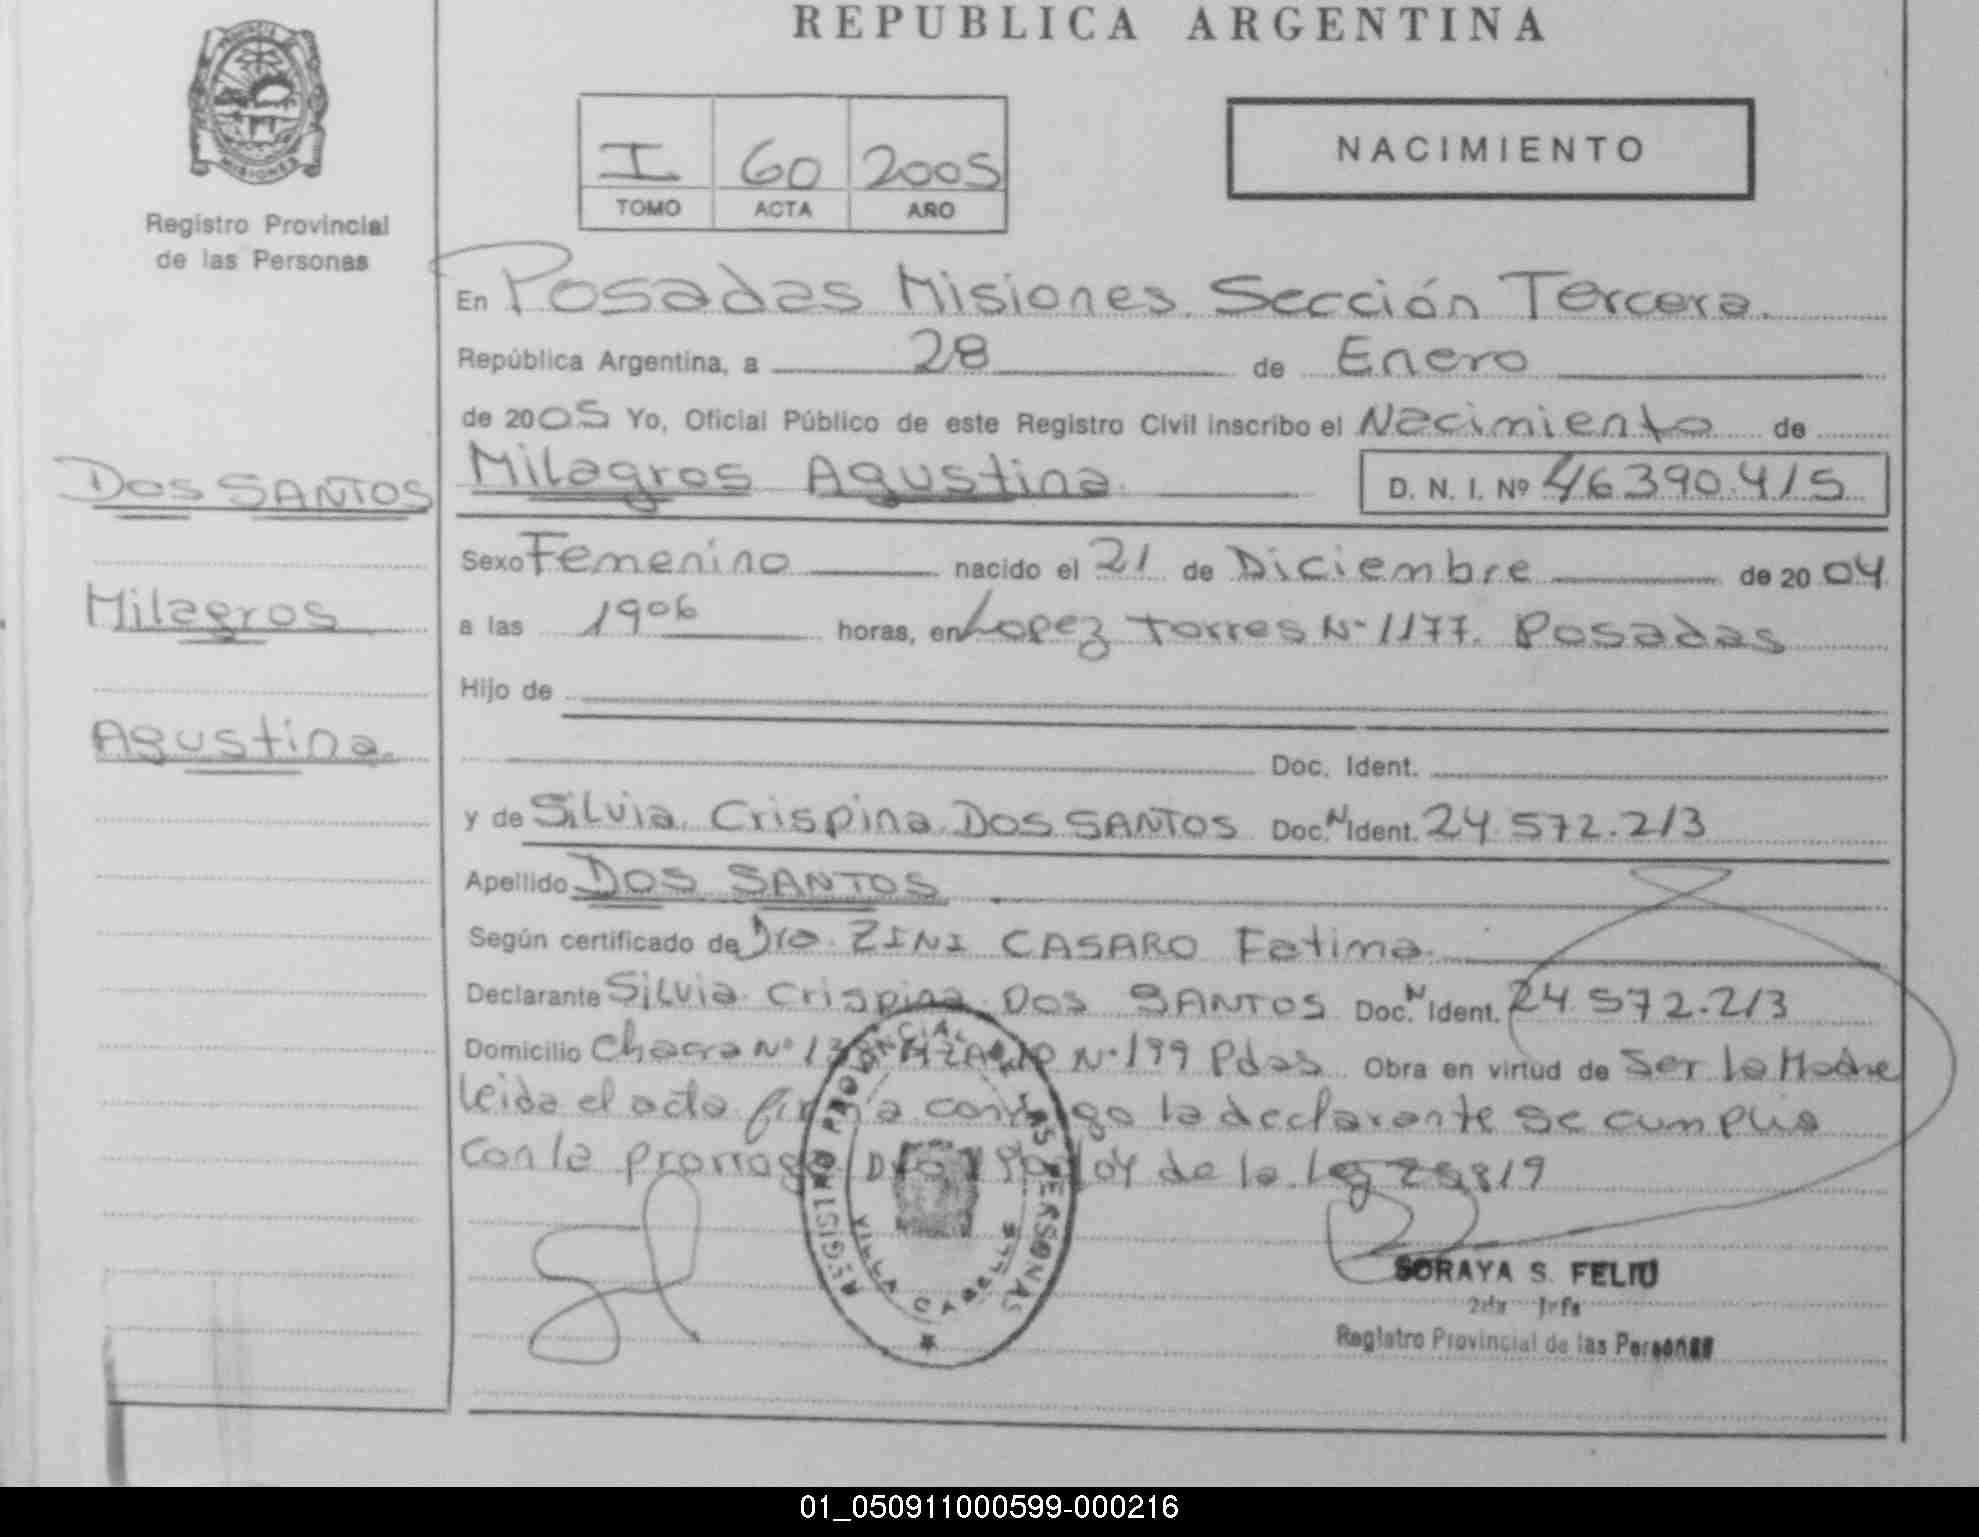 REPUBLICA ARGENTINA
PROVINCIA
MISIONES
Registro Provincial
de las Personas
I 60 2005
TOMO ACTA AÑO
NACIMIENTO
En Posadas Misiones. Sección Tercera.
República Argentina, a 28 de Enero
de 2005 Yo, Oficial Público de este Registro Civil inscribo el Nacimiento de
Milagros Agustina D. N. I. Nº 46390.415
DOS SANTOS
Milagros
Agustina.
Sexo Femenino nacido el 21 de Diciembre de 2004
a las 19⁰⁶ horas, en Lopez Torres Nº 1177. Posadas
Hijo de
Doc. Ident.
y de Silvia Crispina DOS SANTOS Doc. N Ident. 24.572.213
Apellido DOS SANTOS
Según certificado de Dra. ZINI CASARO Fatima
Declarante Silvia Crispina DOS SANTOS Doc. N Ident. 24.572.213
Domicilio Chacra Nº Nº 199 Pdas Obra en virtud de Ser la Madre
leida el acta firma conmigo la declarante se cumplio
con la prorroga de la Ley 25819
REGISTRO PROVINCIAL DE LAS PERSONAS
VILLA CABELLO
SORAYA S. FELIU
Registro Provincial de las Personas
01_050911000599-000216